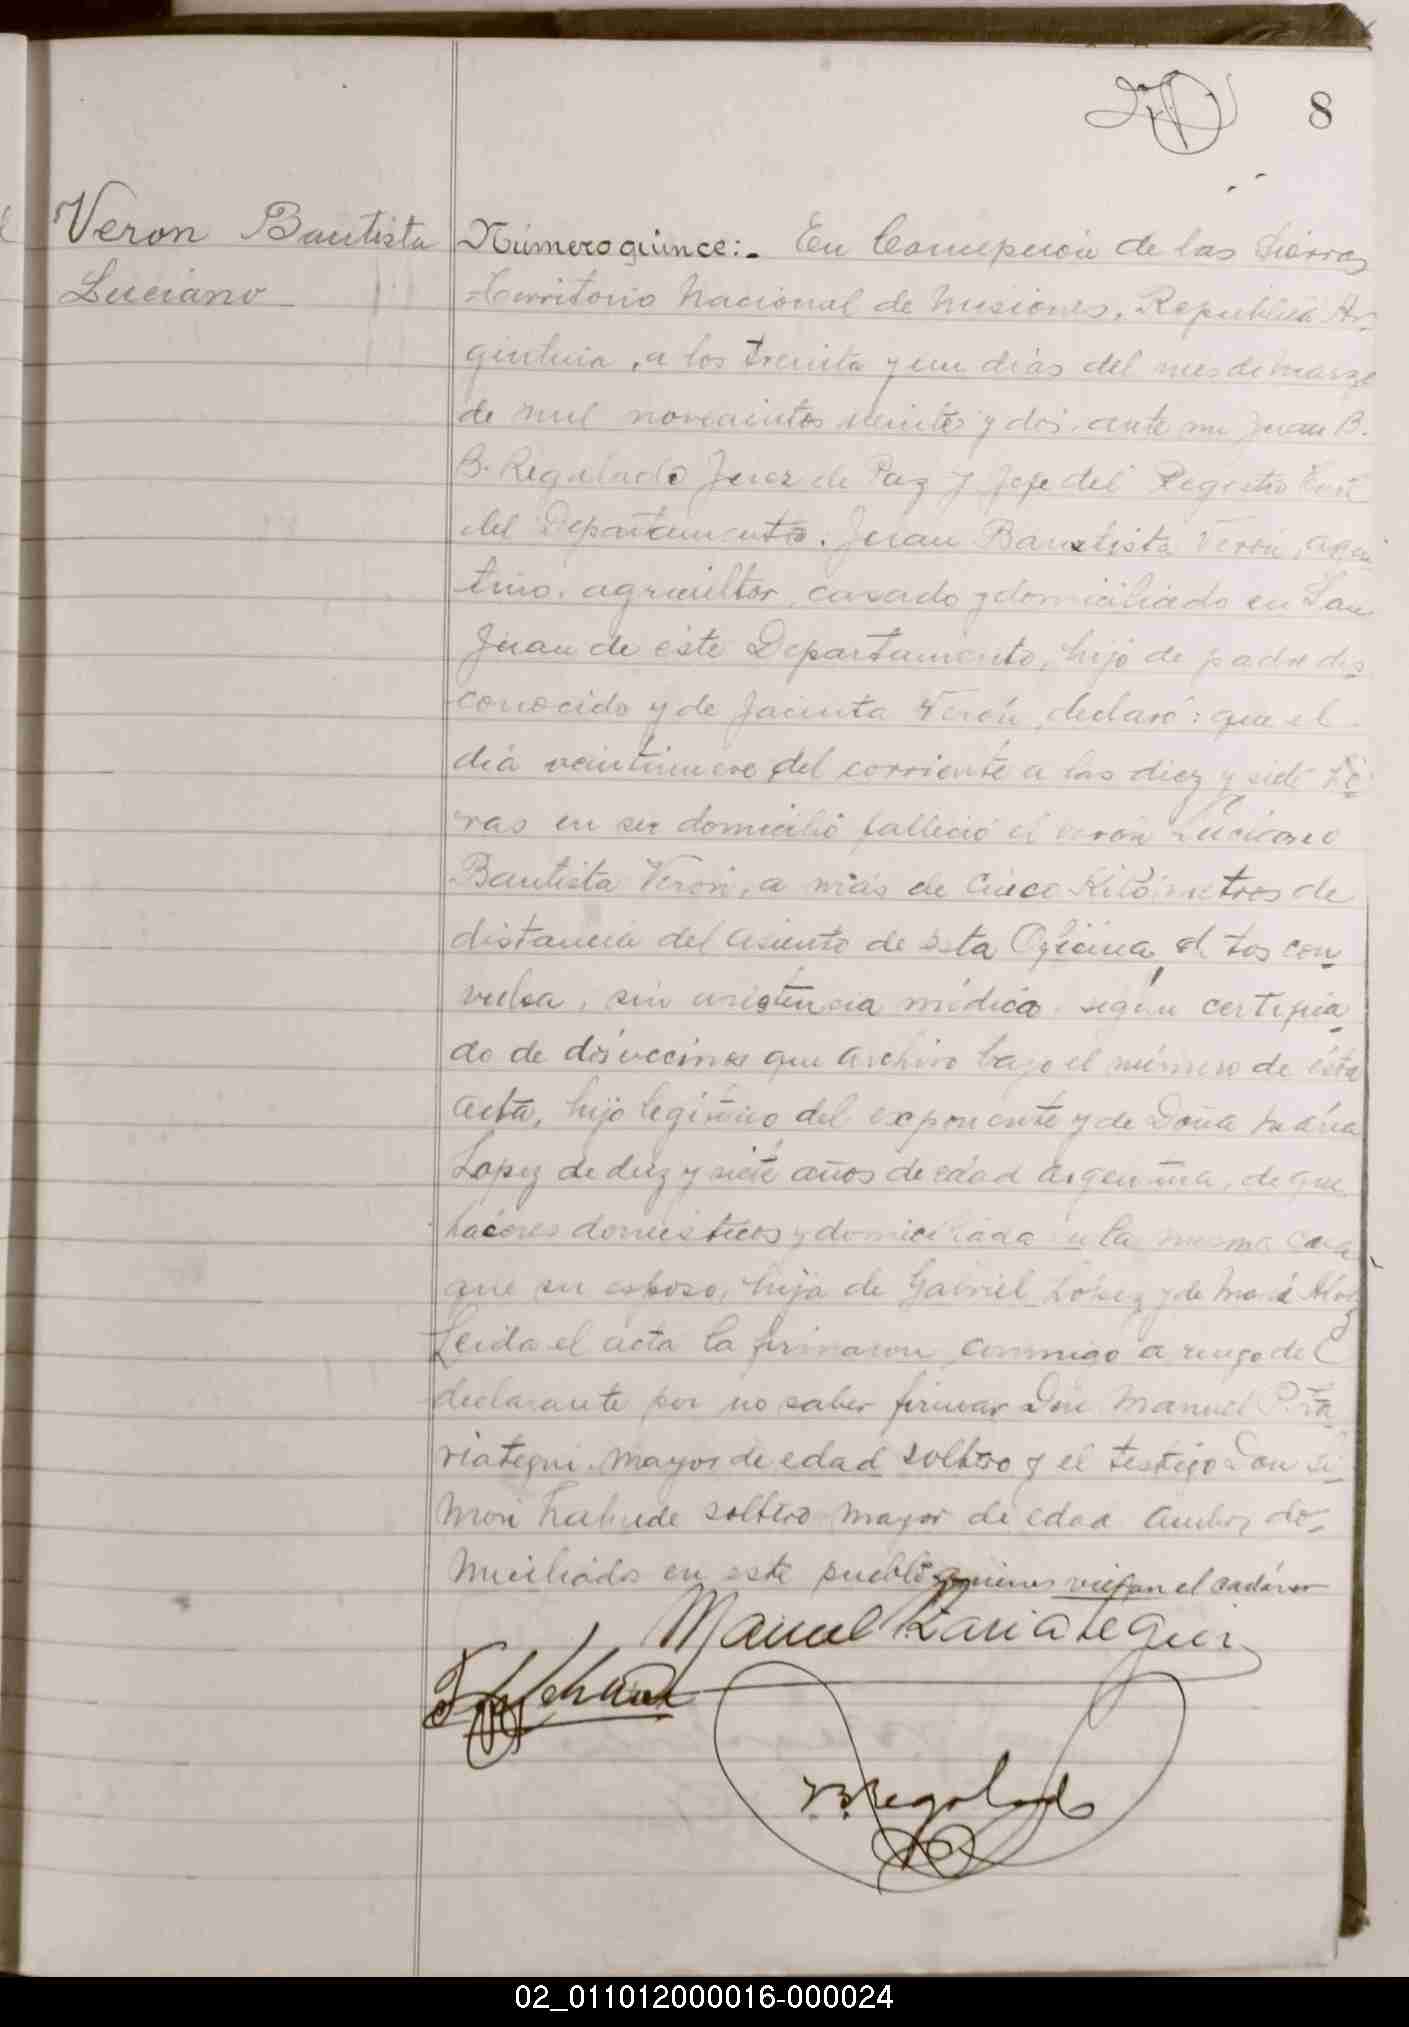 8
Veron Bautista
Luciano
Número quince:- En Concepción de las Sierras
Territorio Nacional de Misiones, República Ar-
gentina, a los treinta y un dias del mes de Marzo
de mil novecientos veinte y dos, ante mi Juan B.
B. Regalado Juez de Paz y Jefe del Registro Civil
del Departamento. Juan Bautista Verón, argen
tino, agricultor, casado y domiciliado en San
Juan de este Departamento, hijo de padre des
conocido y de Jacinta Verón, declaró: que el
dia veintinueve del corriente a las diez y siete ho
ras en su domicilio falleció el varón Luciano
Bautista Veron, a más de cinco Kilómetros de
distancia del asiento de esta Oficina, de tos con
vulsa, sin asistencia médica, según certifica
do de dos vecinos que archivo bajo el número de ésta
acta, hijo legítimo del exponente y de Doña María
Lopez de diez y siete años de edad argentina, de que
haceres domésticos y domiciliada en la misma casa
que su esposo, hija de Gabriel López y de María
Leida el acta la firmaron conmigo a ruego del
declarante por no saber firmar Don Manuel
riategui, mayor de edad soltero y el testigo Don Si
mon soltero mayor de edad ambos do-
miciliados en este pueblo quienes vieron el cadáver
Manuel Lariategui
B Regalado
02_011012000016-000024